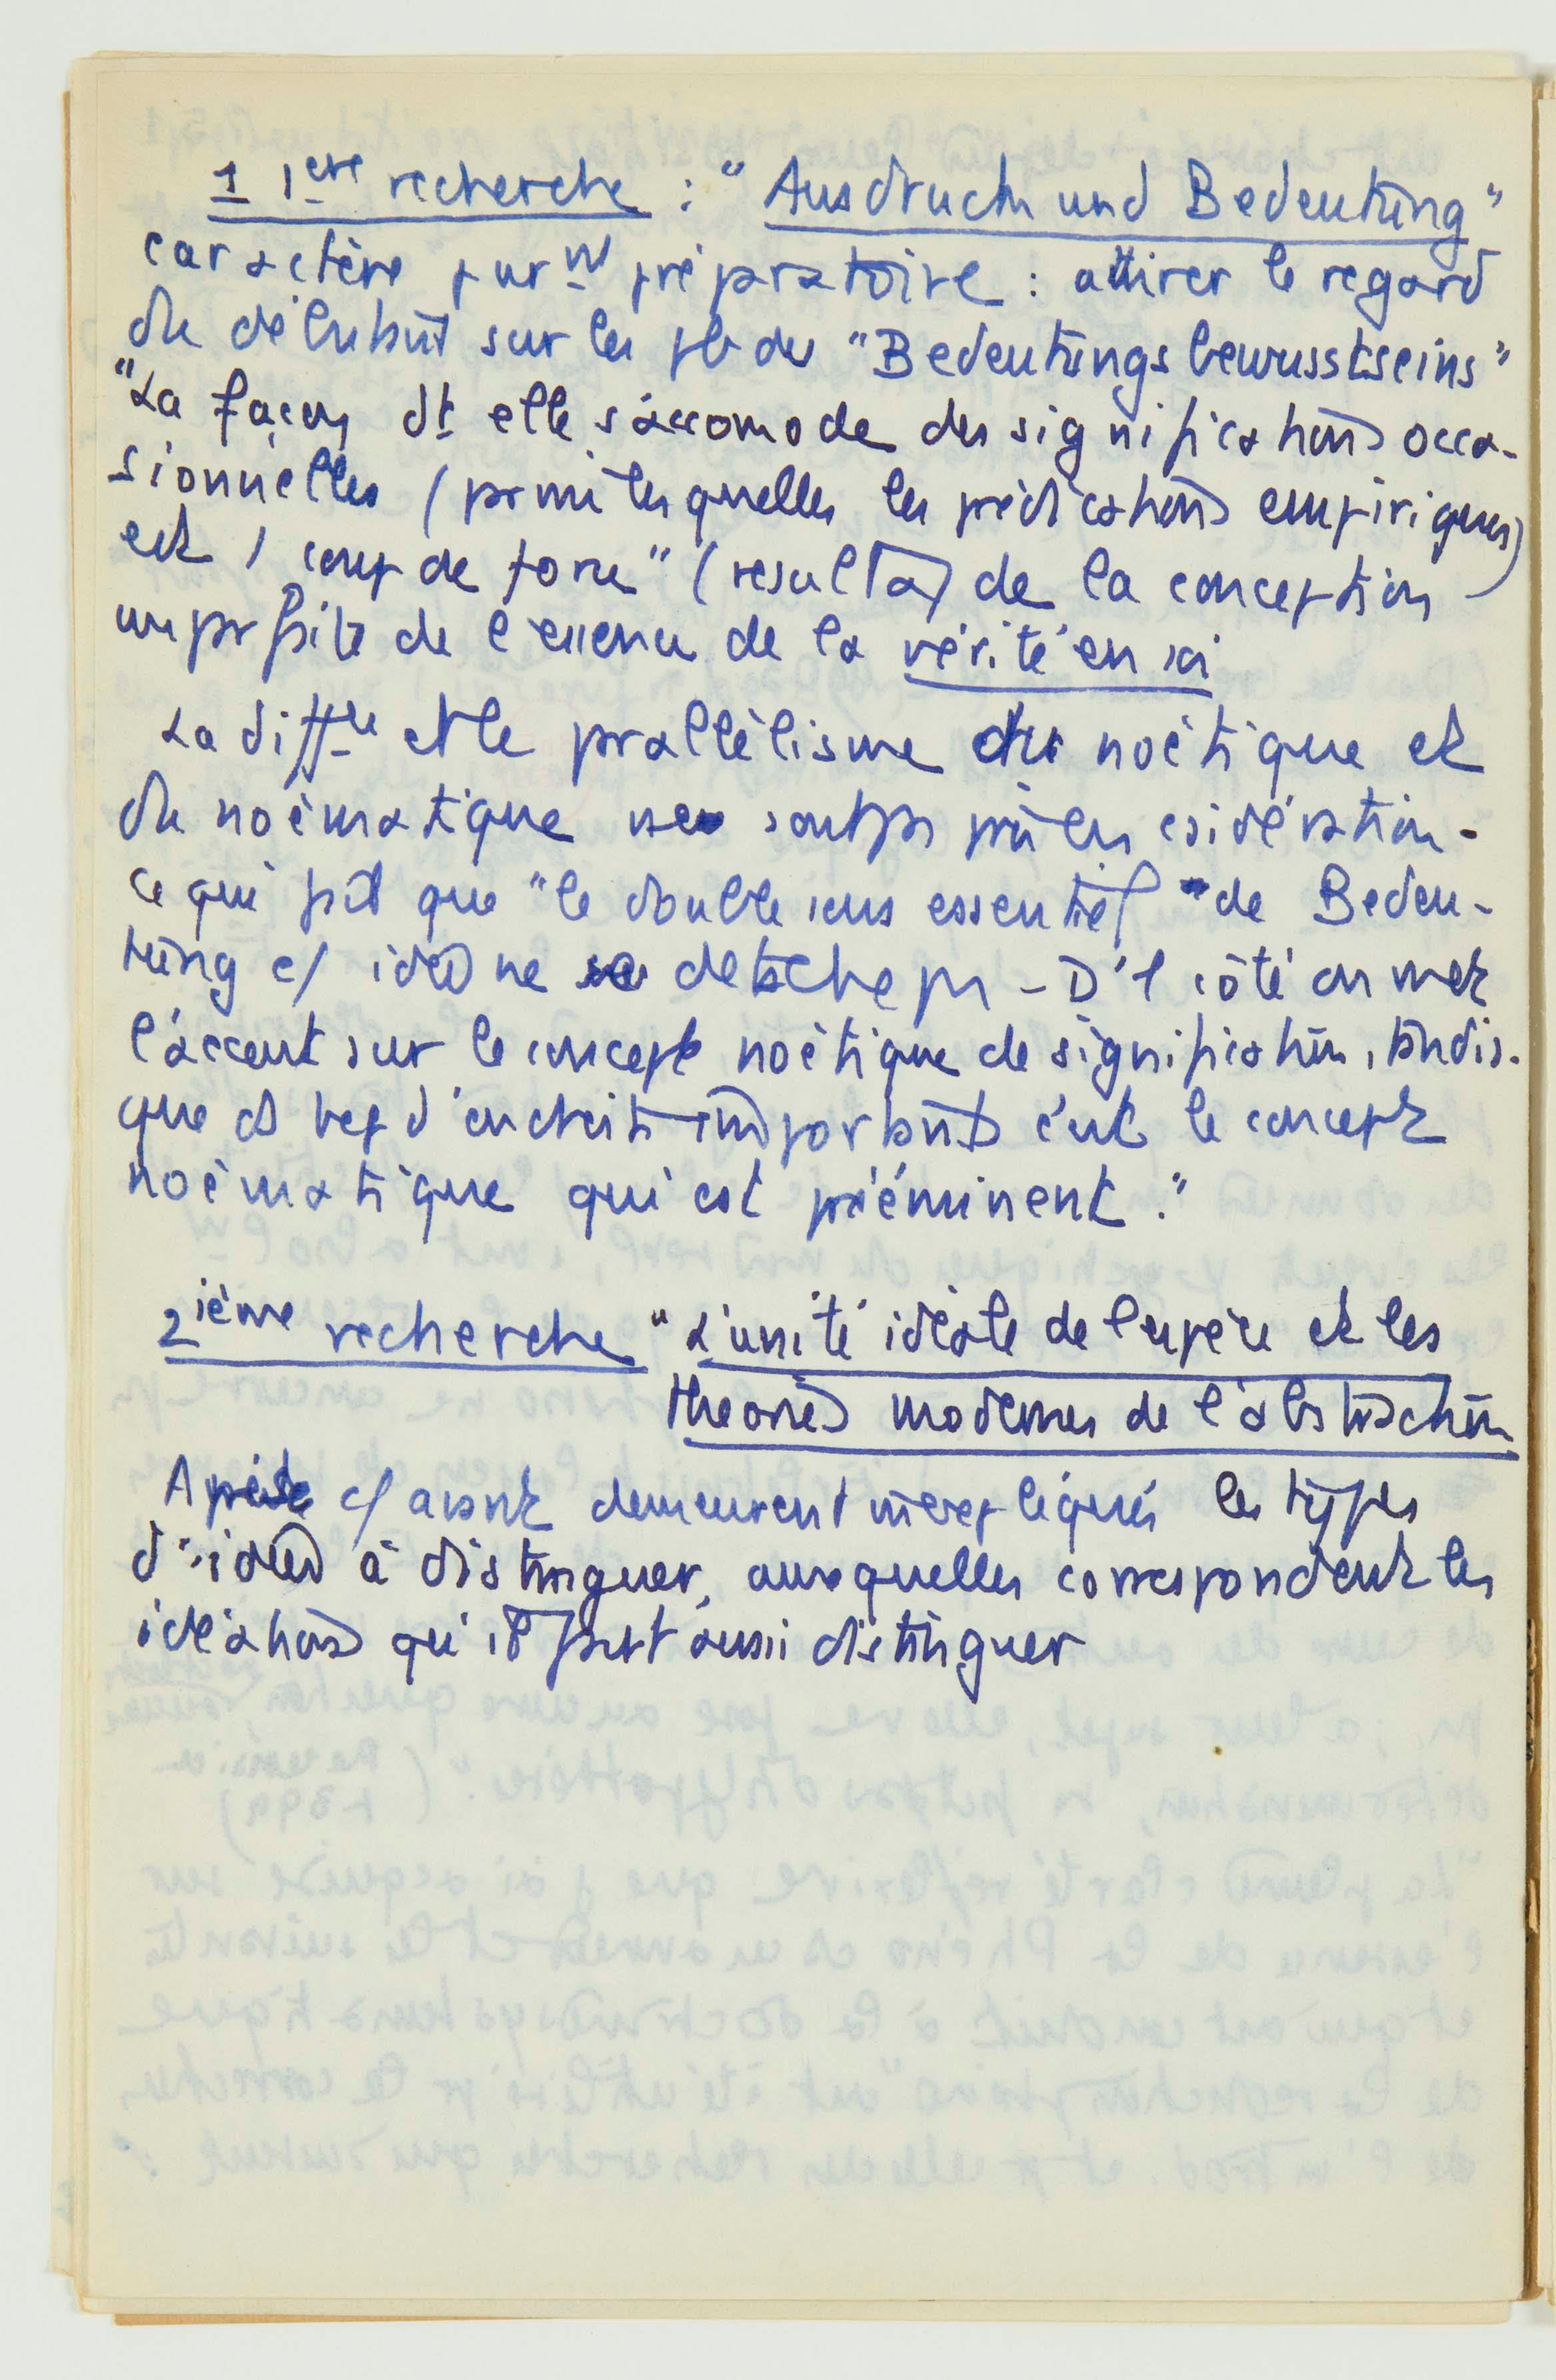 1 1ere recherche : "Ausdruck und Bedeutung"
caractère purnt préparatoire : attirer le regard
du débutant sur les pb du "Bedeutungsbewusstseins"
"La façon dt elle s'accomode des significations occa-
sionnelles (parmi lesquelles les prédications empiriques)
est 1 coup de force" (résultat de la conception
imparfaite de l'essence de la vérité en soi
La diffce et le parallélisme du noétique et
du noématique ne sont pas pris en csidération -
ce qui fait que "le double sens essentiel" de Bedeu-
tung c/ idée ne se détache pas - D'1 côté on met
l'accent sur le concept noétique de signification, tandis-
que ds bcp d'endroits importants c'est le concept
noématique qui est prééminent."
2ième recherche "L'unité idéale de l'espèce et les
théories modernes de l'abstraction
Après c/ avant demeurent inexpliqués les types
d'idées à distinguer, auxquelles correspondent les
idéations qu'il faut aussi distinguer